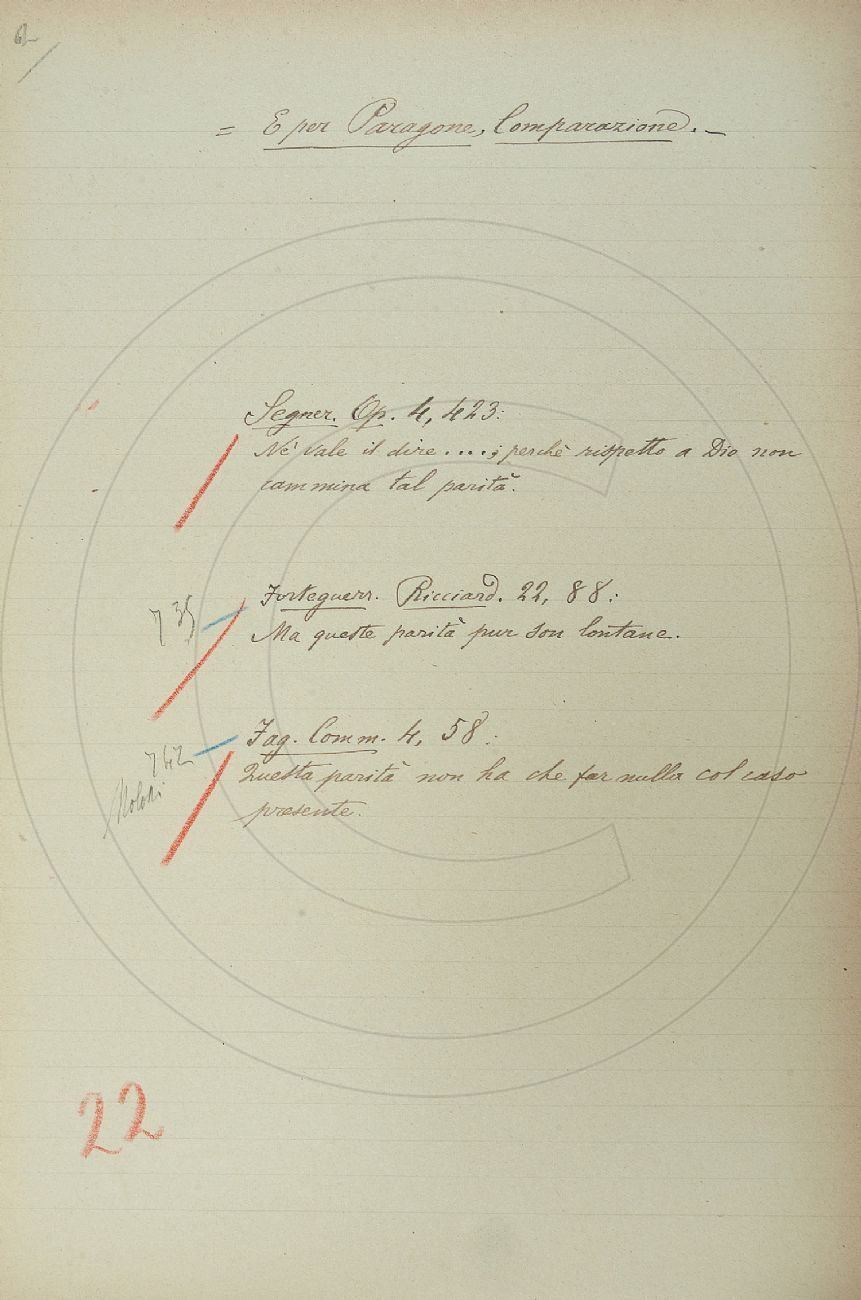 = E per Paragone, Comparazione. –
Segner. Op. 4, 423:
Nè vale il dire ....; perchè rispetto a Dio non
cammina tal parità.
735
Forteguerr. Ricciard. 22, 88:
Ma queste parità pur son lontane.
742
Fag. Comm. 4, 58:
Questa parità non ha che far nulla col caso
presente.
22